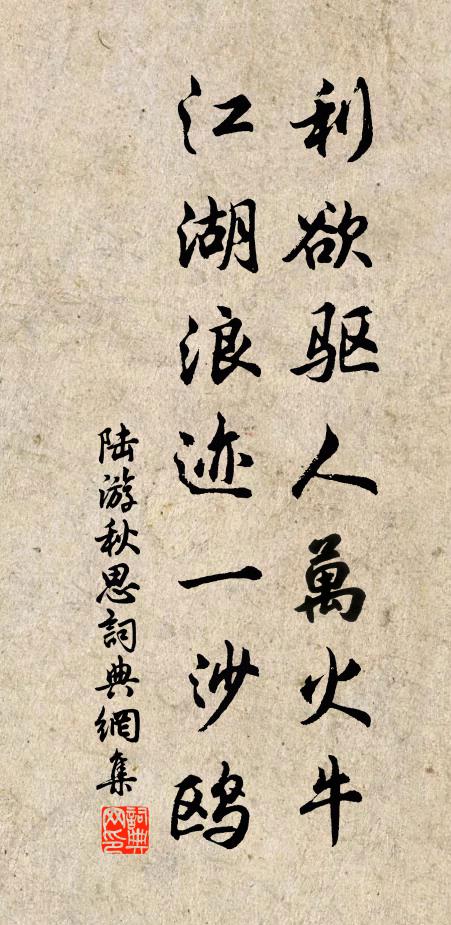 利欲驱人萬火牛
江湖浪迹一沙鸥
陆游秋思詞典網集
詞典网印